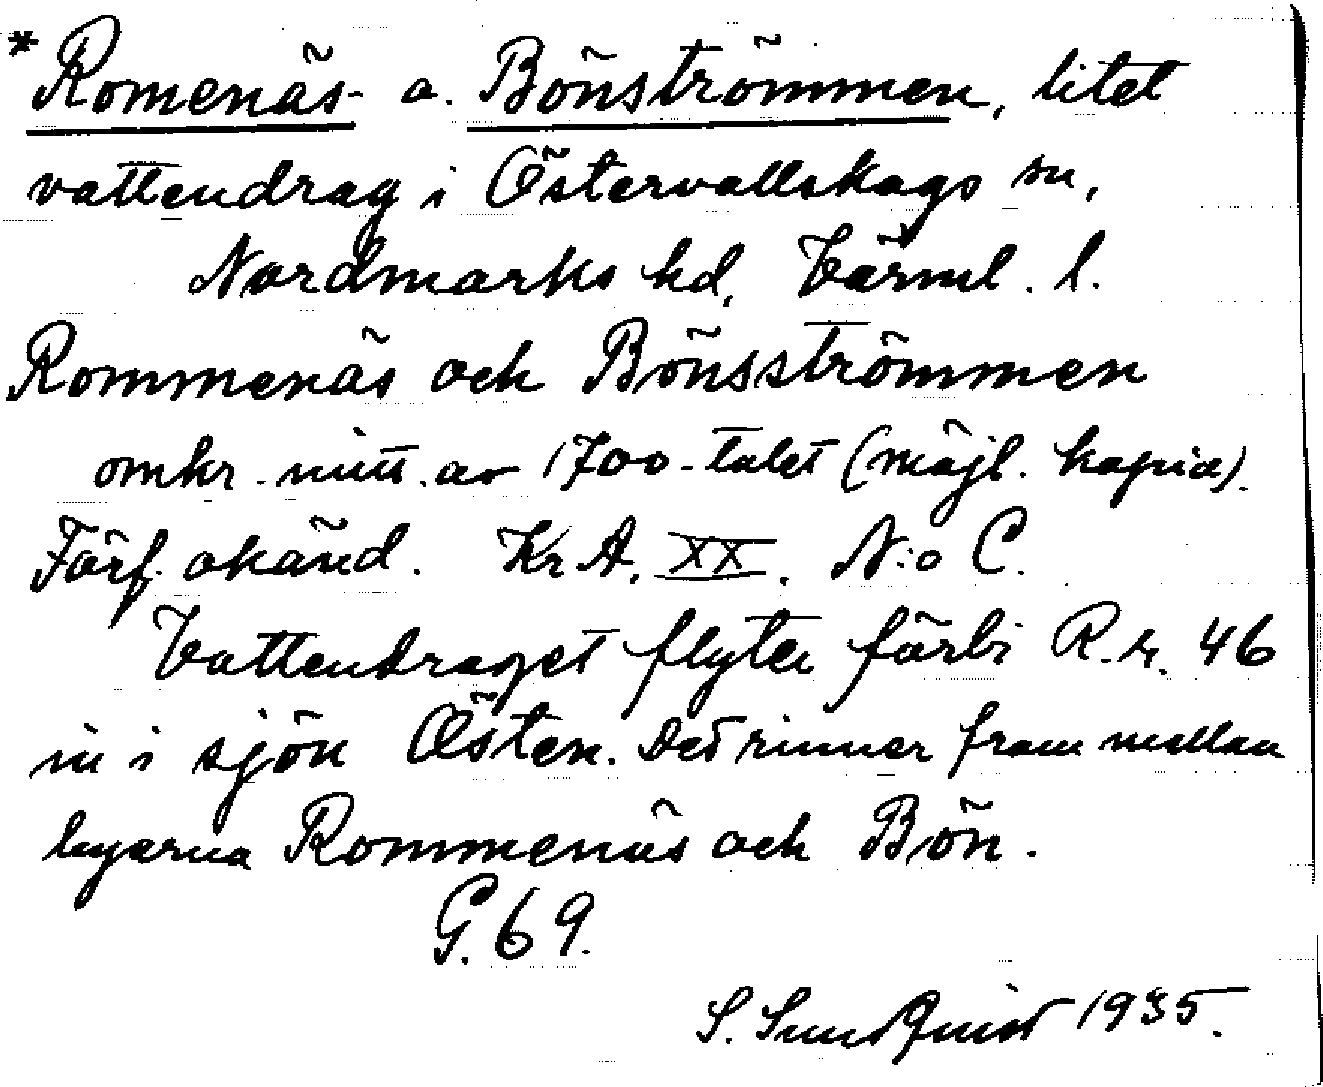 * Romenäs- o. Bönströmmen, litet
vattendrag i Östervallskogs sn,
Nordmarks hd, Värml. l.
Rommenäs och Bönsströmmen
omkr. mitt. av 1700-talet (möjl. kopia).
Förf. okänd. Kr A. XX. N:o C.
Vattendraget flyter förbi R.r. 46
in i sjön Östen. Det rinner fram mellan
byarna Rommenäs och Bön.
G. 69.
S. Sundquist 1935.